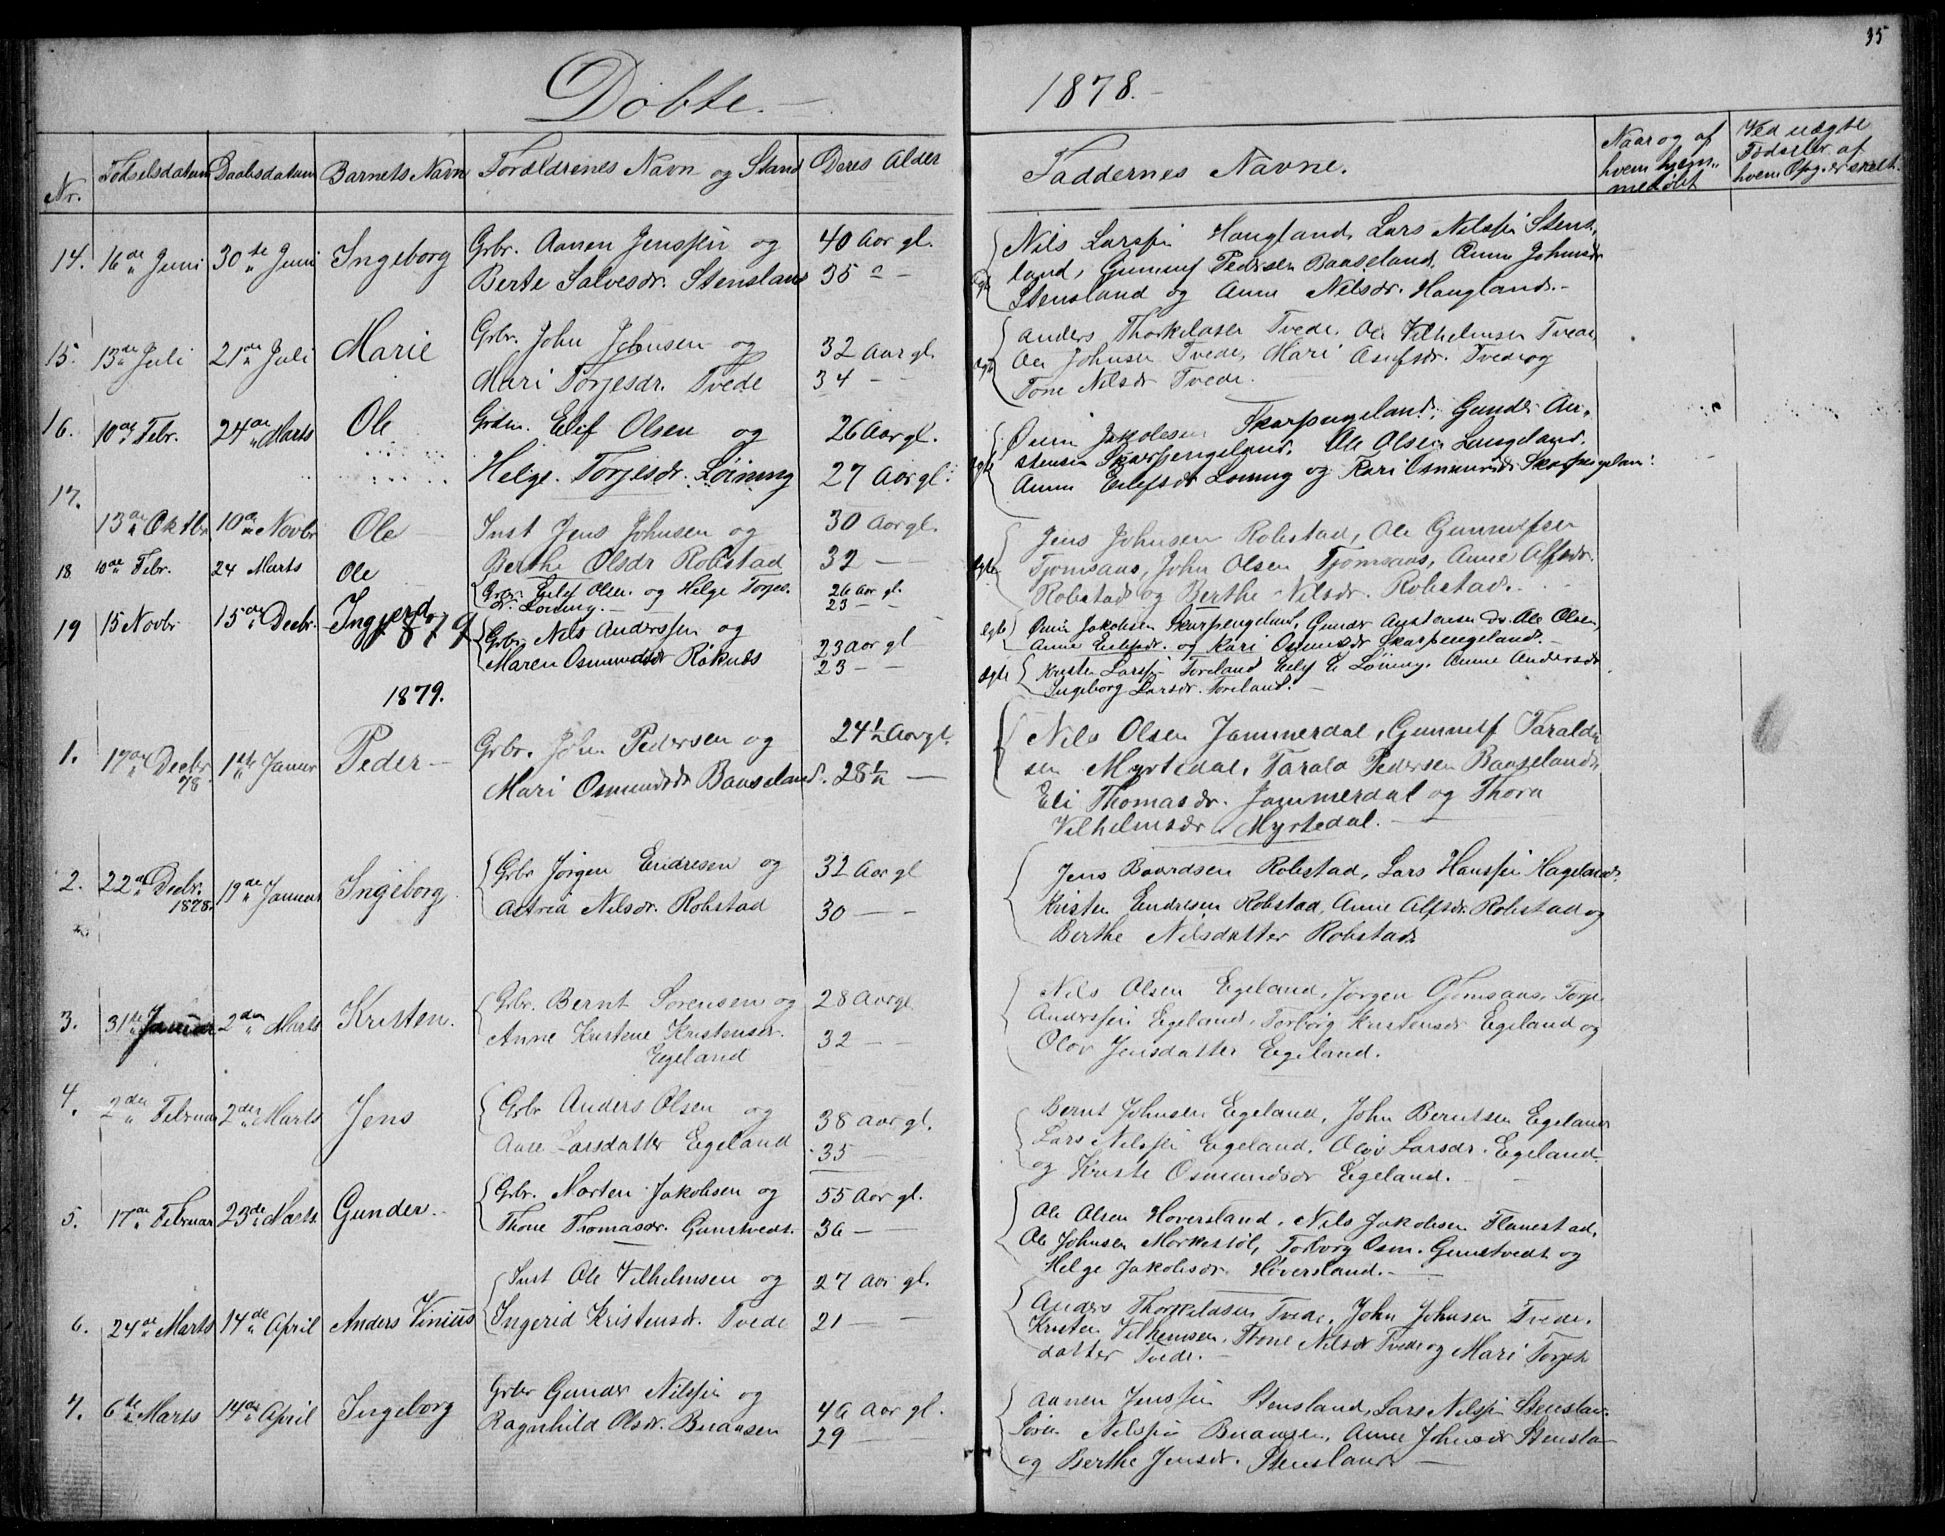 35
Døbte. 1878.
Nr. Fødselsdatum Daabsdatum Barnets Navn Forældrenes Navn og Stand Deres Alder Faddernes Navne. Naar og af hvem hjem- medøbt Ved uægte Fødsler af hvem Opg. er skeet.
14. 16de Juni 30te Juni Ingeborg Grbr. Aanen Jenssen og 40 Aar gl.
Berte Salvesdr. Stensland 35 " -
Nils Larssen Haugland, Lars Nilssen Stens-
land, Gunnuf Pedersen Baaseland, Anne Johnsdr
Stensland og Anne Nilsdr. Haugland.-
15. 13de Juli 21de Juli Marie Grbr. John Johnsen og 32 Aar gl.
Mari Torjesdr. Tvede 34 - -
Anders Thorkildsen Tvede, Ole Vilhelmsen Tvede,
Ole Johnsen Tvede, Mari Tvede og
Tone Nilsdr Tvede.
16. 10de Febr. 24de Marts Ole Grdm. Elif Olsen og 26 Aar gl.
Helge Torjesdr. Løining 27 Aar gl.
Øuin Jakobsen Skarpengeland, Gunder Au-
stensen Skarpengeland, Ole Olsen
Anne Eilefsdr Løining og Kari Osmundsdr Skarpengeland.
17. 13de Oktbr 10de Novbr Ole Inst Jens Johnsen og 30 Aar gl.
Berthe Olsdr Robstad 32 -
ægte Jens Johnsen Robstad, Ole Gunnufsen
Tjomsaas, John Olsen Tjomsaas, Anne Alfsdr.
Robstad og Berthe Nilsdr. Robstad.
18 10de Febr. 24 Marts Ole Grbr. Eilef Olsen og Helge Torjes- 26 Aar gl.
dr. Løining.- 23 - -
ægte Øuin Jakobsen Skarpengeland, Gunder Austensen do. Ole Olsen,
Anne Eilefsdr. og Kari Osmundsdr Skarpengeland.-
19 15 Novbr 15de Decbr. Ingjerd Grbr. Nils Anderssen og 23 Aar gl
1879
Maren Osmundsdr Røknes 23 - -
ægte Kristen Larssen Foreland Eilef E Løining. Anne Andersdr
Ingeborg Larsdr. Foreland. -
1879.
1. 17de Decbr 78 1ste Januar Peder - Grbr. John Pedersen og 24½ Aar gl.
Mari Osmundsdr Baaseland. 28½ -
Nils Olsen Jammerdal, Gunnulf Tarald-
sen Myrtedal, Tarald Pedersen Baaseland,
Eli Thomasdr. Jammerdal og Thora
Vilhelmsdr Myrtedal.-
2. 22de Decbr. 1878. 19de Januar Ingeborg. Grbr Jørgen Endresen og 32 Aar gl
Astrid Nilsdr. Robstad 30 - -
Jens Baardsen Robstad, Lars Hanssen Hageland,
Kristen Endresen Robstad, Anne Alfsdr. Robstad og
Berthe Nilsdatter Robstad.
3. 31te Januar 2den Marts Kristen. Grbr. Bernt Sørensen og 28 Aar gl
Anne Kristene Kristensdr. 32 - -
Egeland
Nils Olsen Egeland, Jørgen Tjomsaas, Torje
Anderssen Egeland, Torborg Kristensdr Egeland og
Olov Jensdatter Egeland.
4. 2den Februar 2den Marts Jens Grbr Anders Olsen og 38 Aar gl.
Aase Larsdatter Egeland 35 -
Bernt Johnsen Egeland, John Berntsen Egeland
Lars Nilssen Egeland, Olov Larsdr. Egeland
og Osmundsdr Egeland.
5. 17de Februar 23de Marts. Gunder. Grbr. Morten Jakobsen og 55 Aar gl.
Thone Thomasdr. Gunstvedt. 36 -
Ole Olsen Høversland, Nils Jakobsen Flanestad,
Ole Johnsen Mørkestøl, Torborg Osm. Gunstvedt og
Helge Jakobsdr. Høversland.-
6. 24de Marts 14de April Anders Vinius Inst Ole Vilhelmsen og 27 Aar gl.
Ingerid Kristensdr. Tvede 21 - -
Anders Thorkildsen Tvede, John Johnsen Tvede,
Kristen Vilhemsen, Thone Nilsdr Tvede og Mari Torjes
datter Tvede.-
7. 6te Marts 14de April Ingeborg Grbr Gunder Nilssen og 46 Aar gl.
Ragnhild Olsdr. Buaasen 29 - -
Aanen Jenssen Stensland, Lars Nilssen Stenslan-
Søren Nilssen Buaasen, Anne Johnsdr Stensla-
og Berthe Jensdr. Stensland -